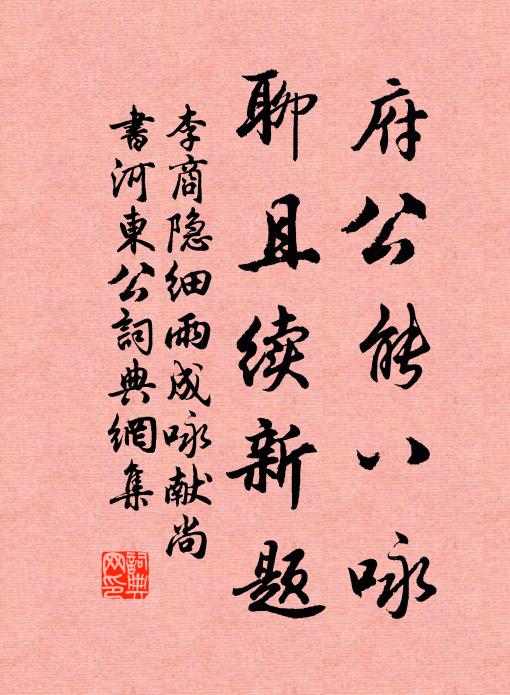 府公能八咏
聊且续新题
李商隐细雨成咏献尚
书河東公詞典網集
詞典
网印